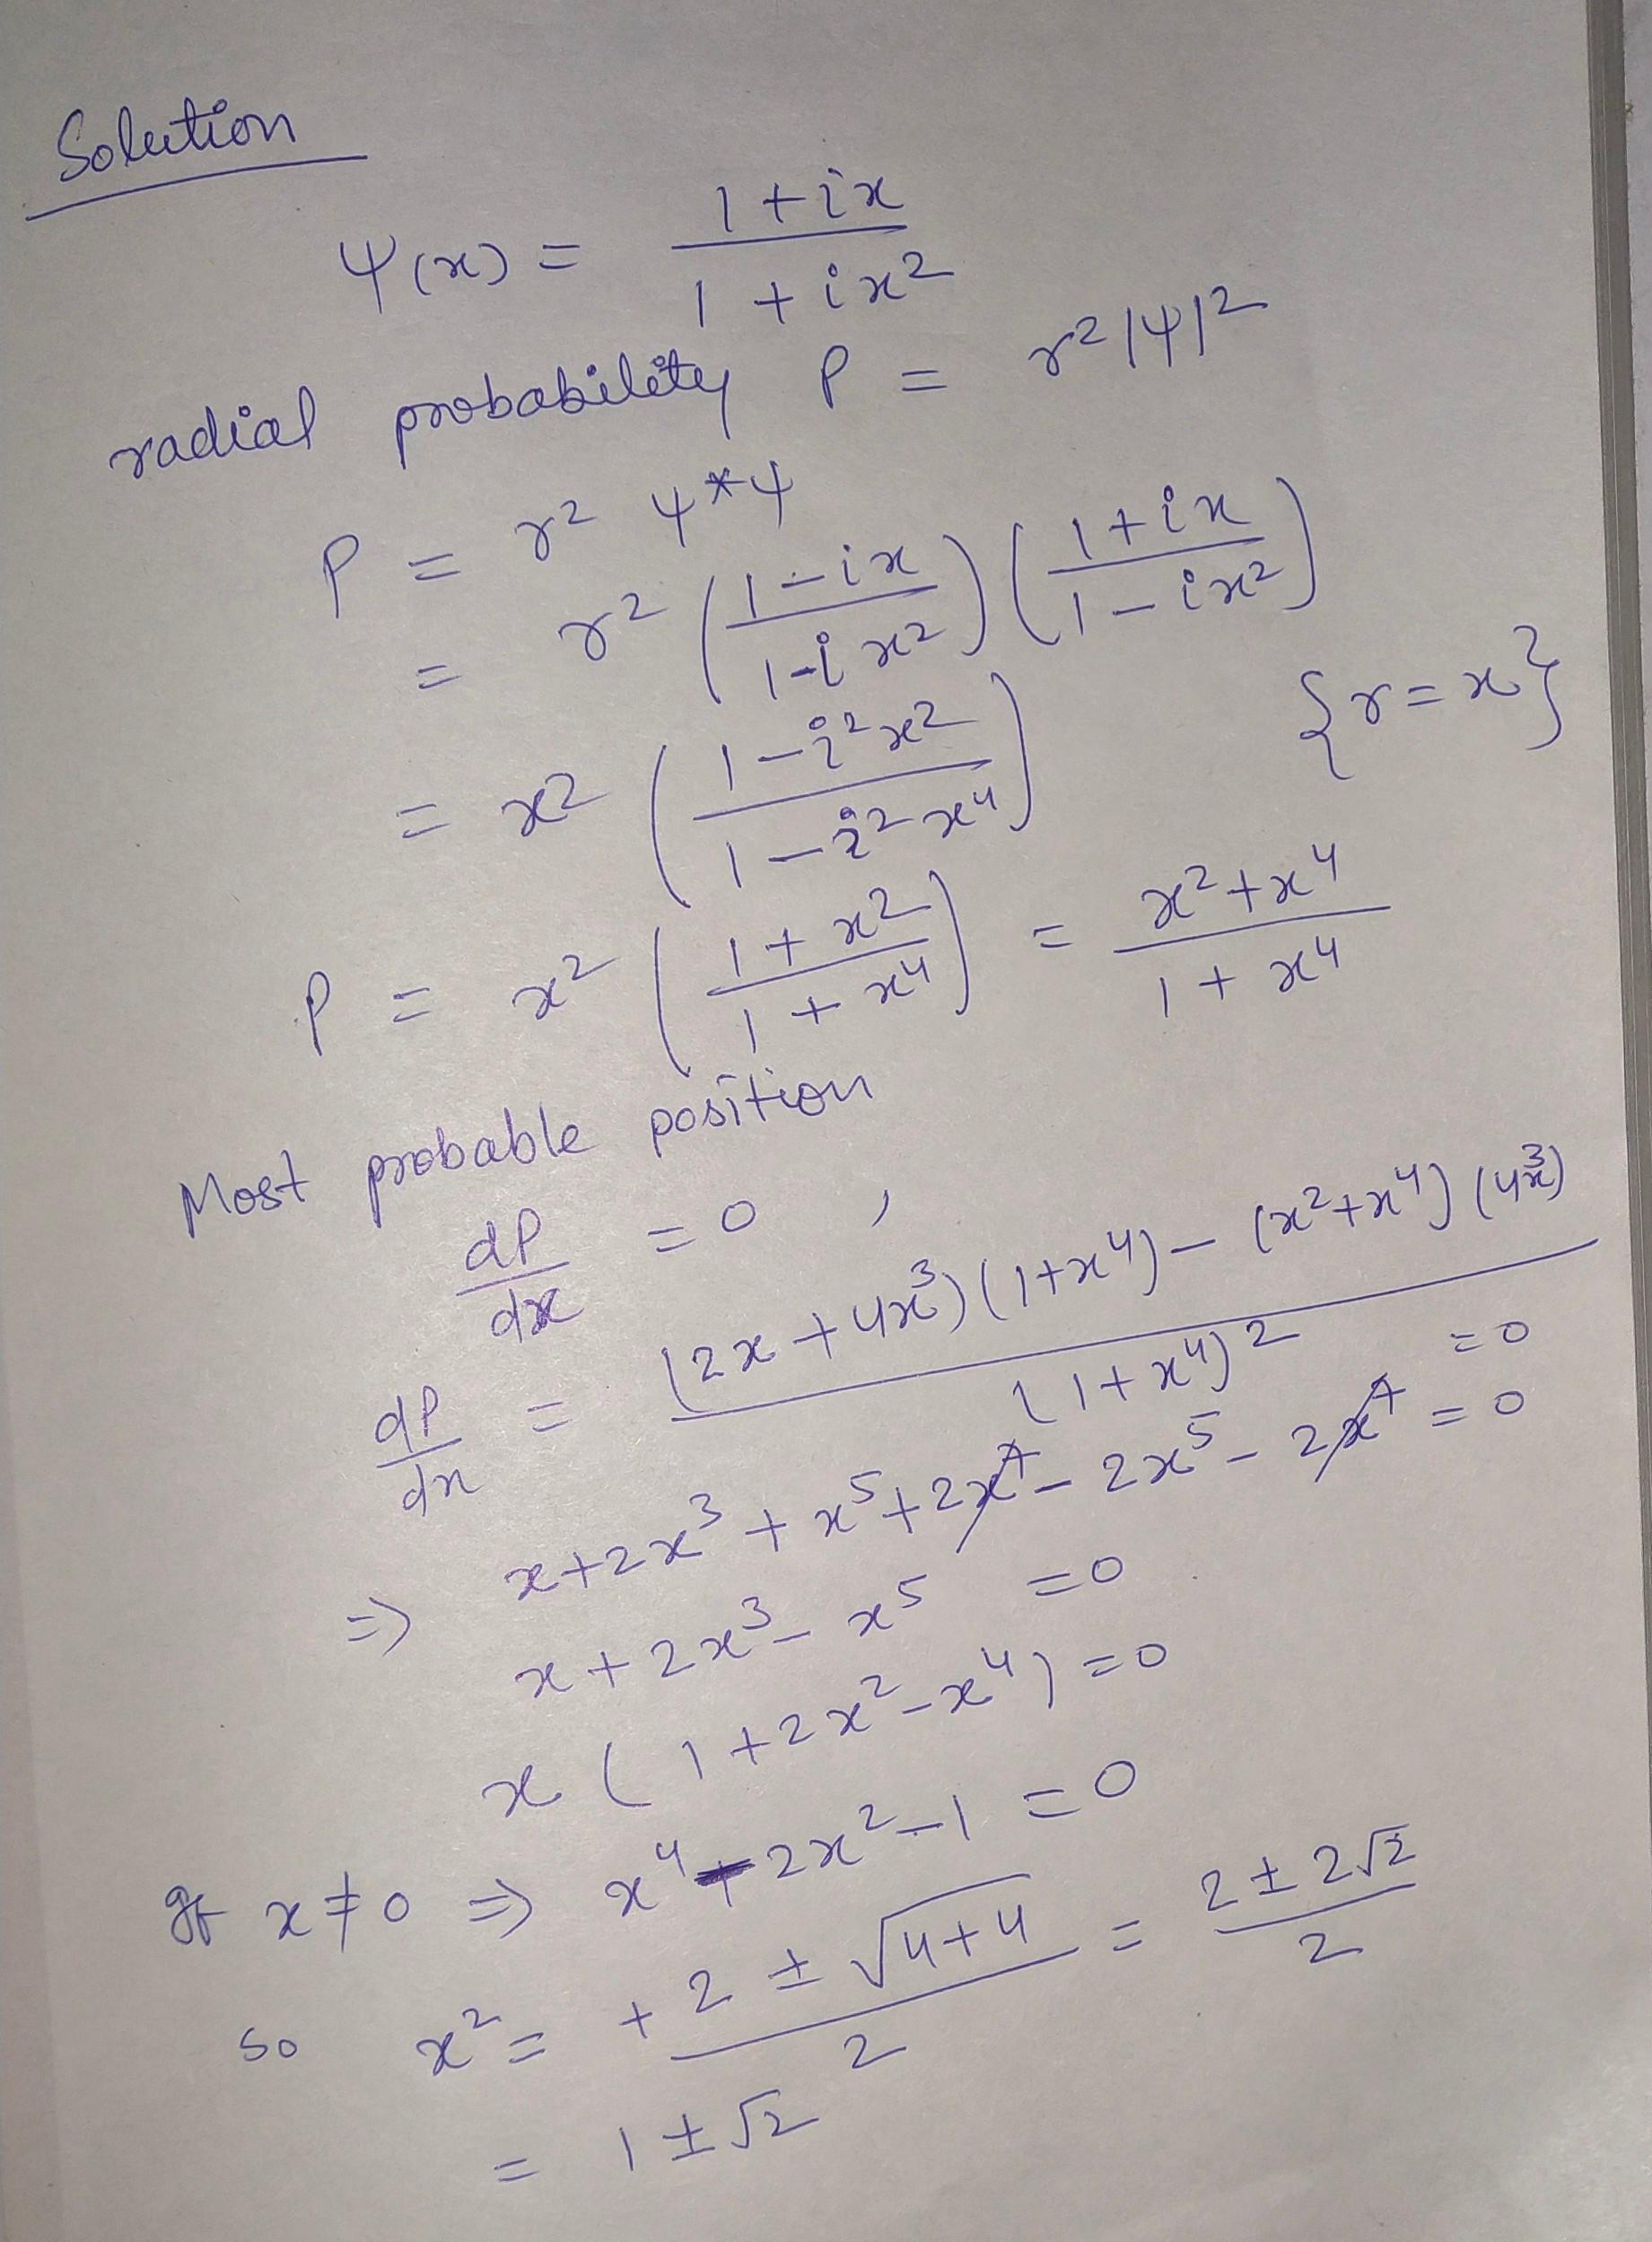 Solution
ψ(x) = (1+ix)/(1+ix²)
radial probability P = r²|ψ|²
P = r² ψ*ψ
= r² ((1-ix)/(1-ix²)) ((1+ix)/(1-ix²))
= x² ((1-i²x²)/(1-i²x⁴)) {r=x}
P = x² ((1+x²)/(1+x⁴)) = (x²+x⁴)/(1+x⁴)
Most probable position
dP/dx = 0 ,
dP/dx = ((2x+4x³)(1+x⁴)-(x²+x⁴)(4x³))/(1+x⁴)² = 0
⇒ x+2x³+x⁵+2x⁷-2x⁵-2x⁷ = 0
x+2x³-x⁵ = 0
x(1+2x²-x⁴) = 0
If x≠0 ⇒ x⁴-2x²-1 = 0
so x² = (+2±√(4+4))/2 = (2±2√2)/2
= 1±√2